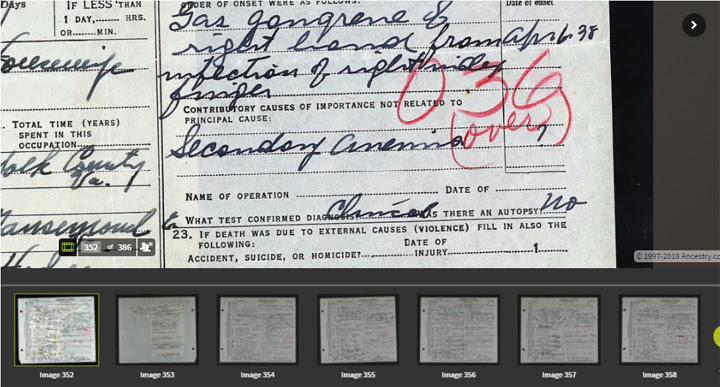 Days
IF LESS THAN
1 DAY, HRS.
OR MIN.
ORDER OF ONSET WERE AS FOLLOWS:
Date of onset
Gas gangrene of
right hand from Apr 6 38
infection of right index
finger
036
(over)
Housewife
CONTRIBUTORY CAUSES OF IMPORTANCE NOT RELATED TO
PRINCIPAL CAUSE:
Secondary anemia
. TOTAL TIME (YEARS)
SPENT IN THIS
OCCUPATION
folk County
Va.
Nansemond
NAME OF OPERATION DATE OF
WHAT TEST CONFIRMED DIAGNOSIS Clinical WAS THERE AN AUTOPSY? No
23. IF DEATH WAS DUE TO EXTERNAL CAUSES (VIOLENCE) FILL IN ALSO THE
FOLLOWING:
DATE OF
ACCIDENT, SUICIDE, OR HOMICIDE? INJURY 1
352 of 386
© 1997-2016 Ancestry.co
Image 352
Image 353
Image 354
Image 355
Image 356
Image 357
Image 358